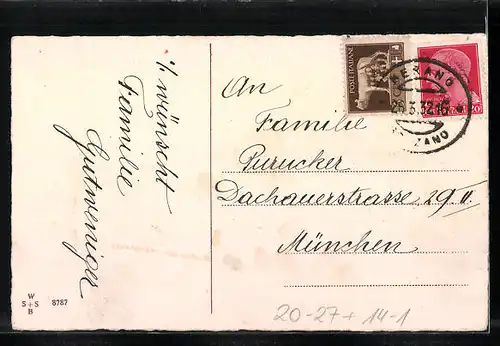 :/ wünscht
Familie
Gutweniger
W
S+S
B
8787
POSTE ITALIANE
MERANO
26.3.32.16
ZANO
20
An
Familie
Purucher
Dachauerstrasse 29 II.
München
20-27+14-1